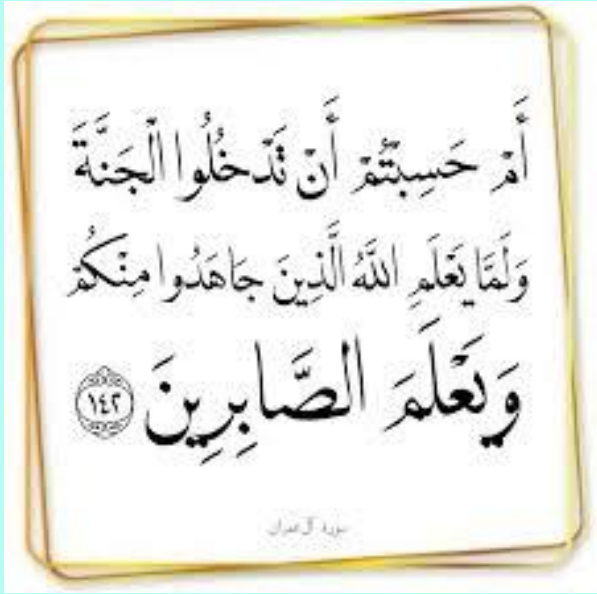 أَمْ حَسِبْتُمْ أَنْ تَدْخُلُوا الْجَنَّةَ
وَلَمَّا يَعْلَمِ اللَّهُ الَّذِينَ جَاهَدُوا مِنْكُمْ
وَيَعْلَمَ الصَّابِرِينَ ١٤٢
سورة آل عمران